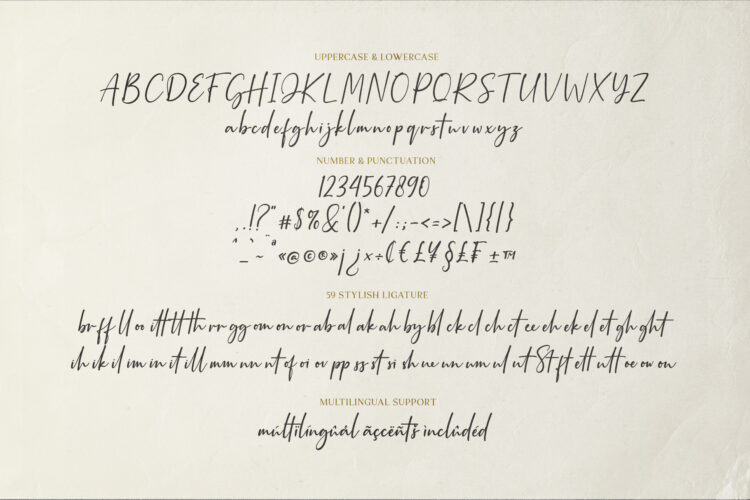 UPPERCASE & LOWERCASE
ABCDEFGHIJKLMNOPQRSTUVWXYZ
abcdefghijklmnopqrstuvwxyz
NUMBER & PUNCTUATION
1234567890
,.!?"#$%&'()*+/:;-<=>[\]{|}
^_`~¨ª«@©®»¡¿×÷₡€£¥§₤₣±™
59 STYLISH LIGATURE
br ff ll oo itt tt th rr gg om on or ab al ak ah by bl ck cl ch ct ee ch ek el et gh ght
ih ik il im in it ill mm nn nt of oi ov pp ss st si sh ue un um ul ut St ft ett utt oe ow ou
MULTILINGUAL SUPPORT
múltïlíngûál ãççëñt's inclûdéd